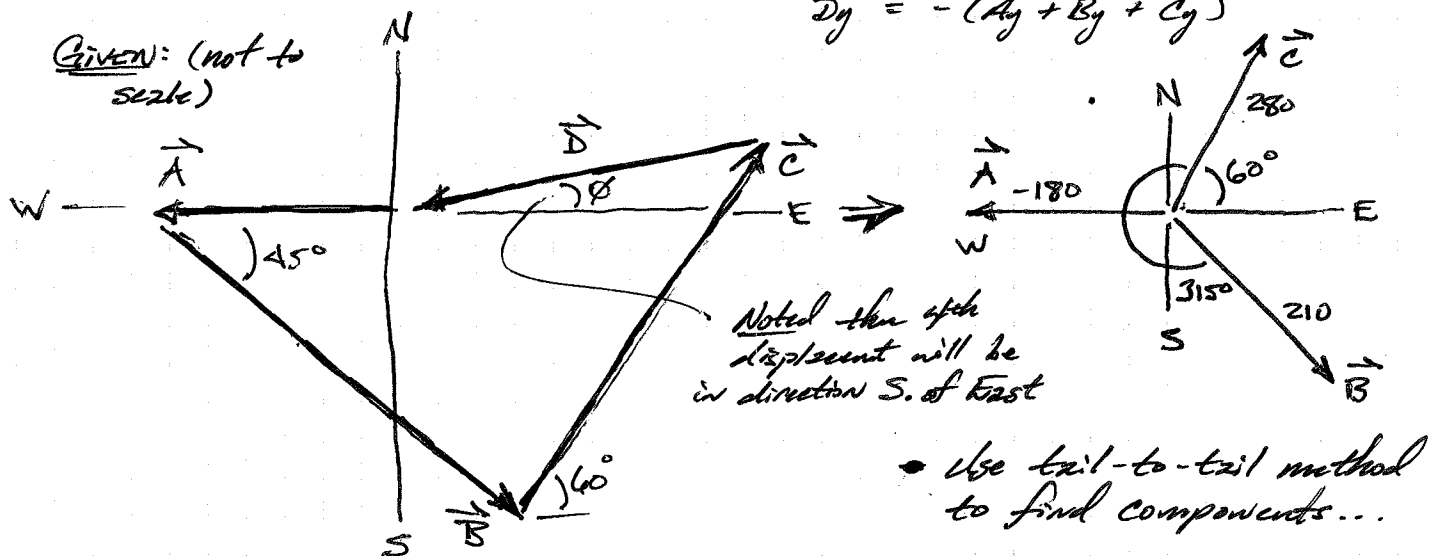 Dy = -(Ay + By + Cy)
GIVEN: (not to
scale)
N
A
D
C
W
E
ø
45°
60°
B
S
Noted the 4th
displacemnt will be
in direction S. of East
N
C
280
60°
A
-180
W
E
315°
210
S
B
• Use tail-to-tail method
to find components...